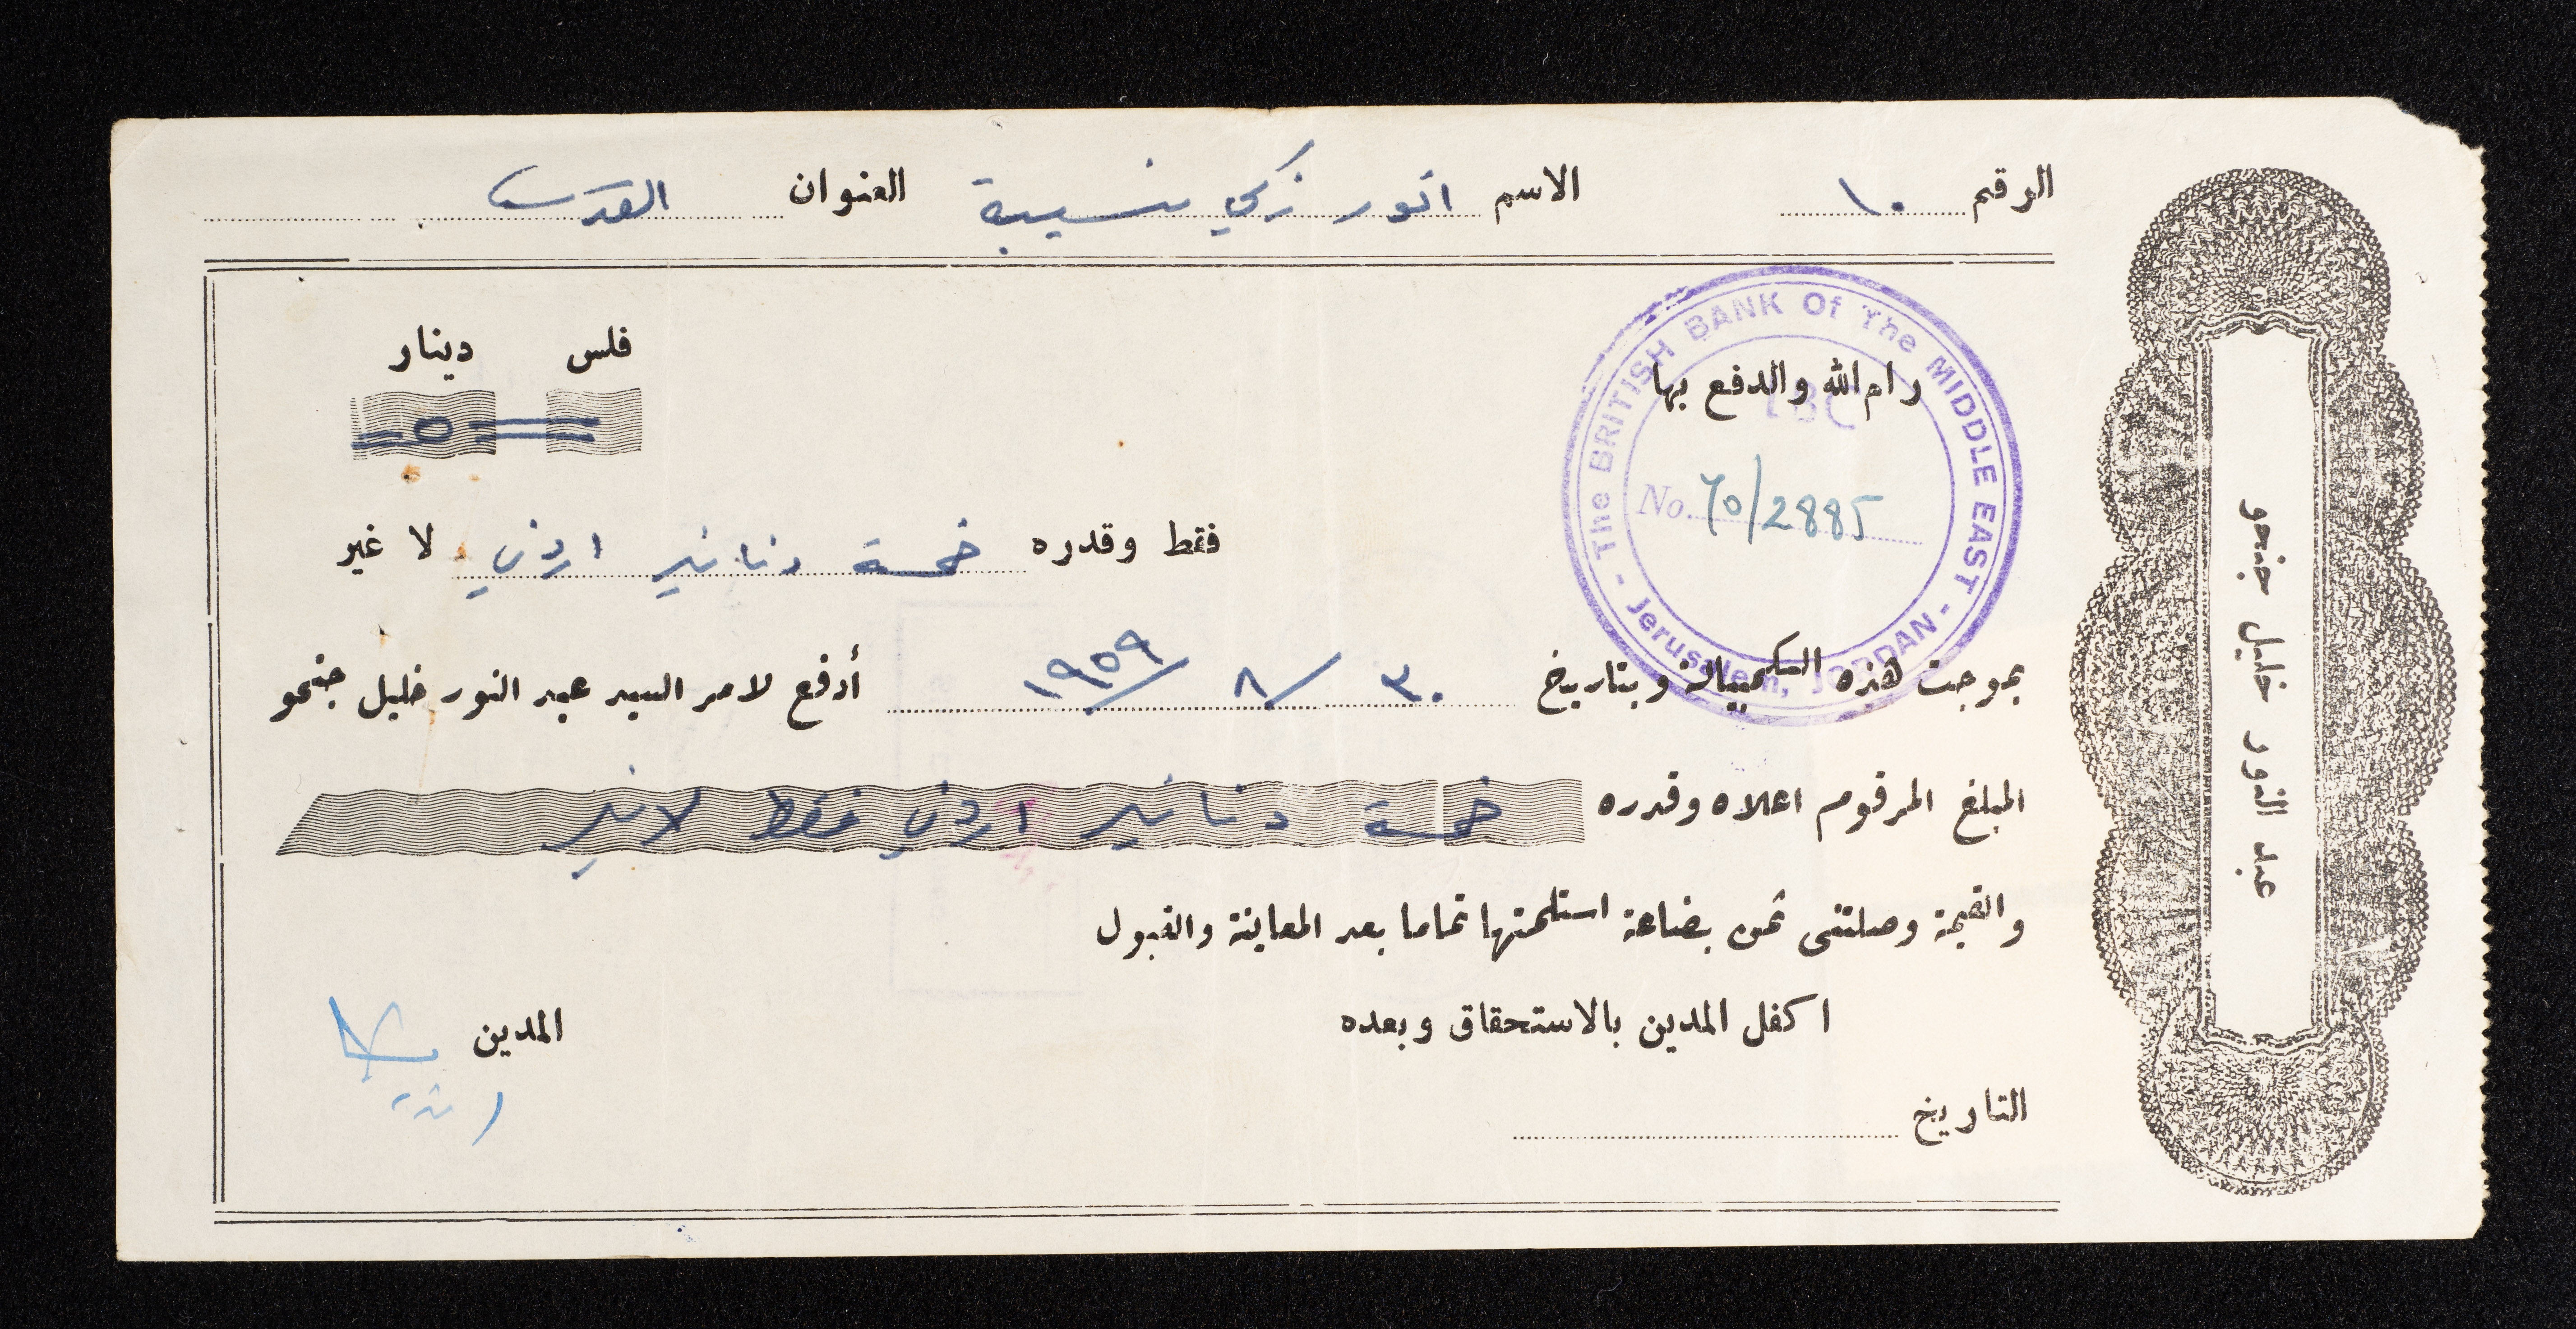 الرقم ١٠ الاسم انور زكي نسيبة العنوان القدس
فلس دينار
=٥=
رام الله والدفع بها
The BRITISH BANK Of The MIDDLE EAST - Jerusalem, JORDAN -
No. 70/2885
فقط وقدره خمسة دنانير اردني لا غير
بموجب هذه الكمبيالة وبتاريخ ٣٠ / ٨ / ١٩٥٩ أدفع لامر السيد عبد النور خليل جنحو
المبلغ المرقوم اعلاه وقدره خمسة دنانير اردني فقط لا غير
والقيمة وصلتني ثمن بضاعة استلمتها تماما بعد المعاينة والقبول
اكفل المدين بالاستحقاق وبعده
المدين
التاريخ
عبد النور خليل جنحو